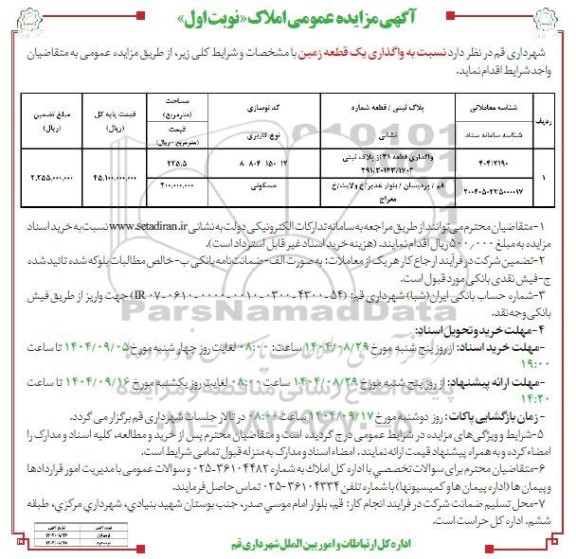 آگهی مزایده عمومی املاک «نوبت اول»
شهرداری قم در نظر دارد نسبت به واگذاری یک قطعه زمین با مشخصات و شرایط کلی زیر، از طریق مزایده عمومی به متقاضیان
واجد شرایط اقدام نماید.
ردیف
شناسه معاملاتی
شناسه سامانه ستاد
پلاک ثبتی / قطعه شماره
نشانی
کد نوسازی
نوع کاربری
مساحت (مترمربع)
قیمت (مترمربع-ریال)
قیمت پایه کل (ریال)
مبلغ تضمین (ریال)
۱
۴۰۴/۲۱۹۰
واگذاری قطعه ۳۱ از پلاک ثبتی
۱۲ ۱۵۰ ۸۰۴ ۸
۲۲۵.۵
۴۵.۱۰۰.۰۰۰.۰۰۰
۲,۲۵۵,۰۰۰,۰۰۰
قم / پردیسان / بلوار غدیر/خ ولایت/خ معراج
مسکونی
۲۰۰.۰۰۰.۰۰۰
۱-متقاضیان محترم می‌توانند از طریق مراجعه به سامانه تدارکات الکترونیکی دولت به نشانی www.setadiran.ir نسبت به خرید اسناد
مزایده به مبلغ ۵۰۰,۰۰۰ ریال اقدام نمایند. (هزینه خرید اسناد غیر قابل استرداد است).
۲-تضمین شرکت در فرآیند ارجاع کار هر یک از معاملات: به صورت الف-ضمانت نامه بانکی ب-خالص مطالبات بلوکه شده تائید شده
ج-فیش نقدی بانکی مورد قبول است.
۳-شماره حساب بانکی ایران (شبا) شهرداری قم: (IR ۰۷-۰۶۱۰-۰۰۰۰-۰۰۱۰-۰۳۰۰-۴۳۰۰-۵۴) جهت واریز از طریق فیش
بانکی وجه نقد.
۴- مهلت خرید و تحویل اسناد:
-مهلت خرید اسناد: از روز پنج شنبه مورخ ۱۴۰۴/۰۸/۲۹ ساعت: ۰۸:۰۰ لغایت روز چهار شنبه مورخ ۱۴۰۴/۰۹/۰۵ تا ساعت
۱۹:۰۰
-مهلت ارائه پیشنهاد: از روز پنج شنبه مورخ ۱۴۰۴/۰۸/۲۹ ساعت ۰۸:۰۰ لغایت روز یکشنبه مورخ ۱۴۰۴/۰۹/۱۶ تا ساعت
۱۴:۳۰
- زمان بازگشایی پاکات: روز دوشنبه مورخ ۱۴۰۴/۰۹/۱۷ ساعت ۰۸:۰۰ در تالار جلسات شهرداری قم برگزار می گردد.
۵-شرایط و ویژگی‌های مزایده در شرایط عمومی درج گردیده است و متقاضیان محترم پس از خرید و مطالعه، کلیه اسناد و مدارک را
امضاء کرده و به همراه پیشنهاد قیمت ارائه نمایند. امضاء اسناد و مدارک به منزله قبول تمامی شرایط است.
۶-متقاضیان محترم برای سوالات تخصصی با اداره کل املاک به شماره ۳۶۱۰۴۴۸۲-۰۲۵ و سوالات عمومی با مدیریت امور قراردادها
و پیمان ها (اداره پیمان ها و کمیسیونها) با شماره تلفن ۳۶۱۰۴۳۳۴-۰۲۵ تماس حاصل فرمایند.
۷-محل تسلیم ضمانت شرکت در فرایند انجام کار: قم، بلوار امام موسی صدر، جنب بوستان شهید بنیادی، شهرداری مرکزی، طبقه
ششم، اداره کل حراست است.
اداره کل ارتباطات و امور بین الملل شهرداری قم
ParsNamadData